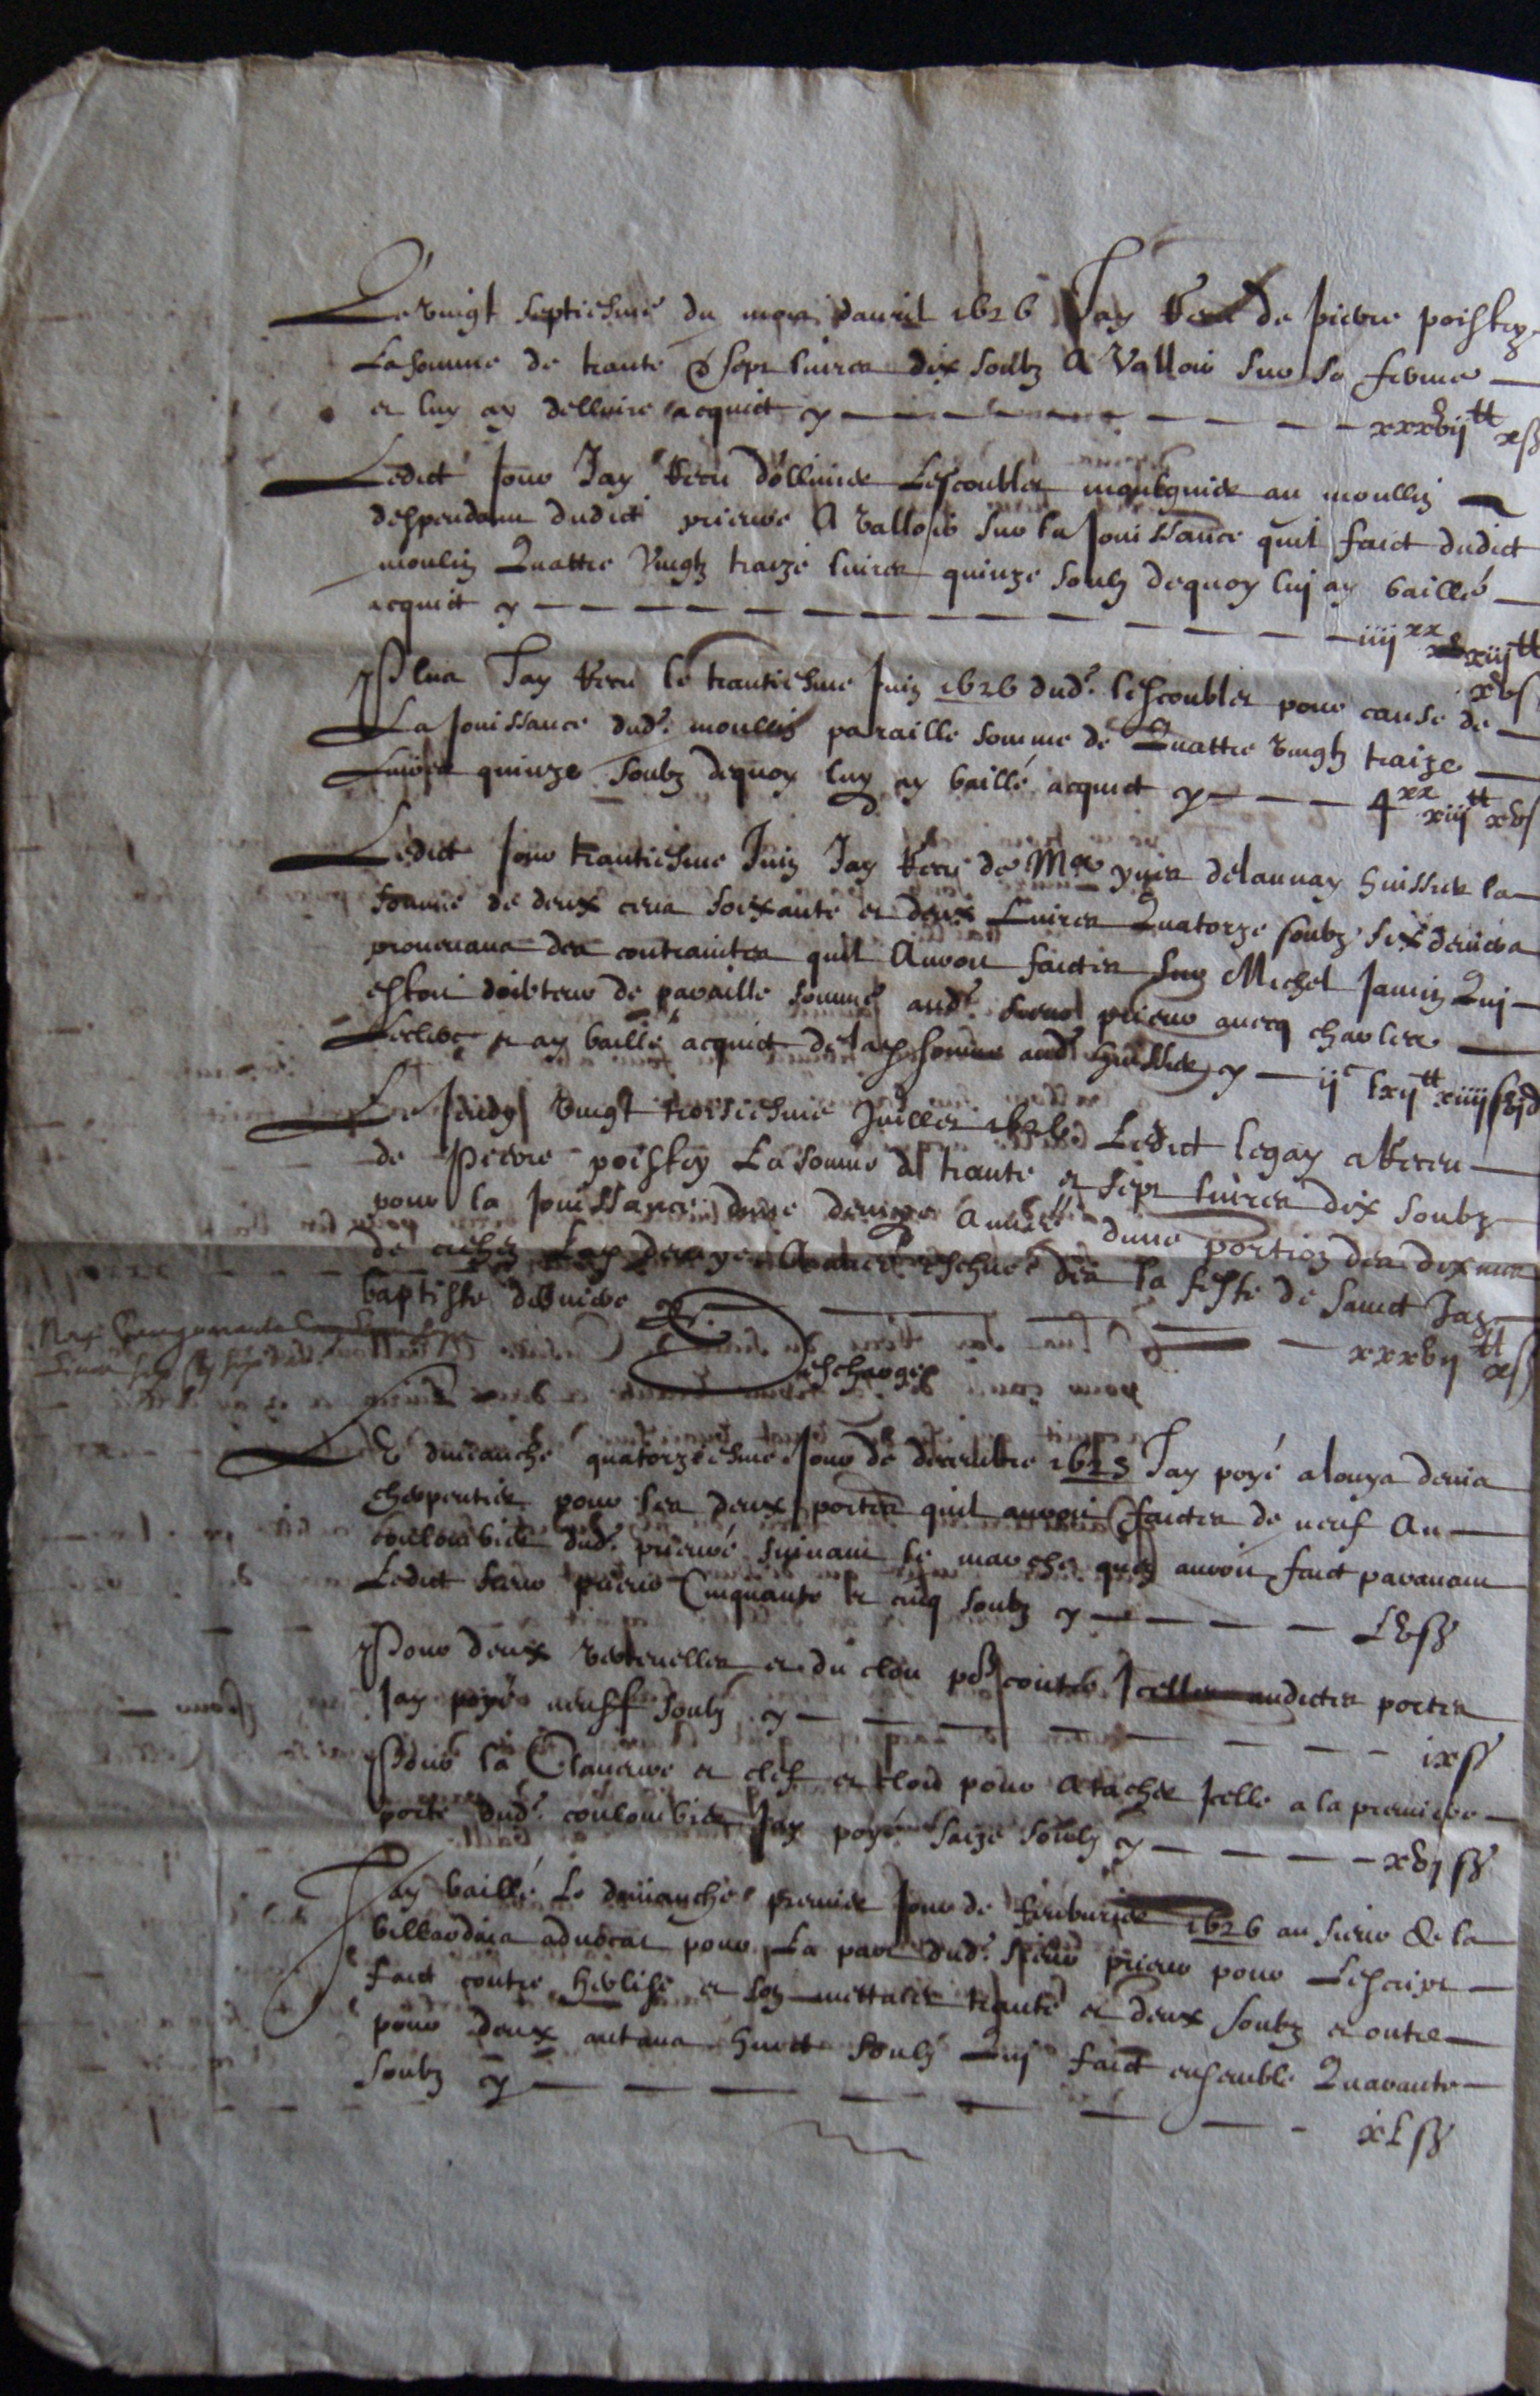 Le vingt septiesme du mois d'avril 1626 Jay Receu de pierre poisley
La somme de trante & sept livres dix soubz A Valloir sur sa ferme
et luy ay dellivré acquict y — xxxvij tt x s
Ledict Jour Jay Receu dollivier Lescoublet monsgnier au moullin
despendant dudict prieuré A valloir sur la Jouissance quil faict dudict
moulin Quattre Vingtz traize livres quinze soubz dequoy luy ay baillé
acquict y — iiij xx xiij tt xv s
Plus Jay Receu le trantiesme Juin 1626 dud. lescoublet pour cause de
La Jouissance dud. moullin paraille somme de Quattre vingtz traize
Livres quinze soubz dequoy luy ay baillé acquict y — 4 xx xiij tt xv s
Ledict Jour trantiesme Juin Jay Receu de Me yves delaunay huissier la
somme de deux cens soixante et deux Livres Quatorze soubz six deniers
provenans des contrainctes quil Avoit faictes sur Michel Jamin Qui
estoit debteur de paraille somme aud. sieur prieur avecq charles
Leclerc et ay baillé acquict de lad. somme aud. huissier y — ij c lxij tt xiiij s vj d
Le Jeudy vingt troisiesme Juillet 1626 Ledict legay a Receu
de Pierre poisley La somme de trante et sept livres dix soubz
pour la Jouissance dune demye Année dune portion des dixmes
de eschue des la feste de Sainct Jan
baptiste derniere y — xxxvij tt x s
Descharge
Le dimanche quatorziesme Jour de decembre 1625 Jay poyé a louys denis
cherpentier pour les deux portes quil avoit faictes de neuf Au
coulombier dud. prieuré suivant le marché quen avoit faict paravant
Ledict sieur prieur Cinquante et cinq soubz y — L v s
Pour deux verterelles et du clou po. icelles ausdictes portes
Jay poyé neuff soubz y — ix s
Pour la Claveure et clef et clou pour atacher Icelle a la premiere
porte dud. coulombier Jay poyé saize soubz y — xvj s
Jay baillé Le dimanche premier Jour de febvrier 1626 au sieur de la
billardais advocat pour La part dud. sieur prieur pour Lescript
faict contre et son mettaier trante et deux soubz et outre
pour deux autans huict soubz Qui faict ensemble Quarante
soubz y — xL s